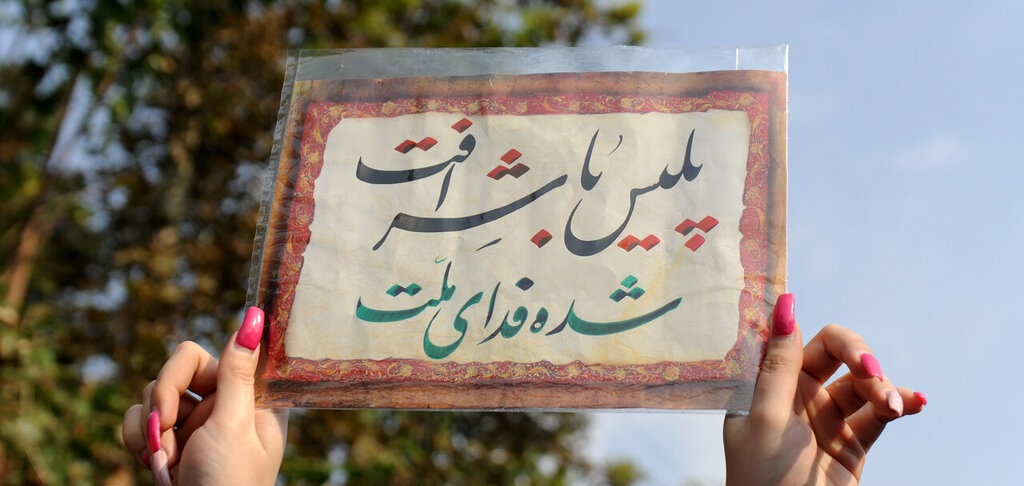 پلیس با شرافت
شده فدای ملّت